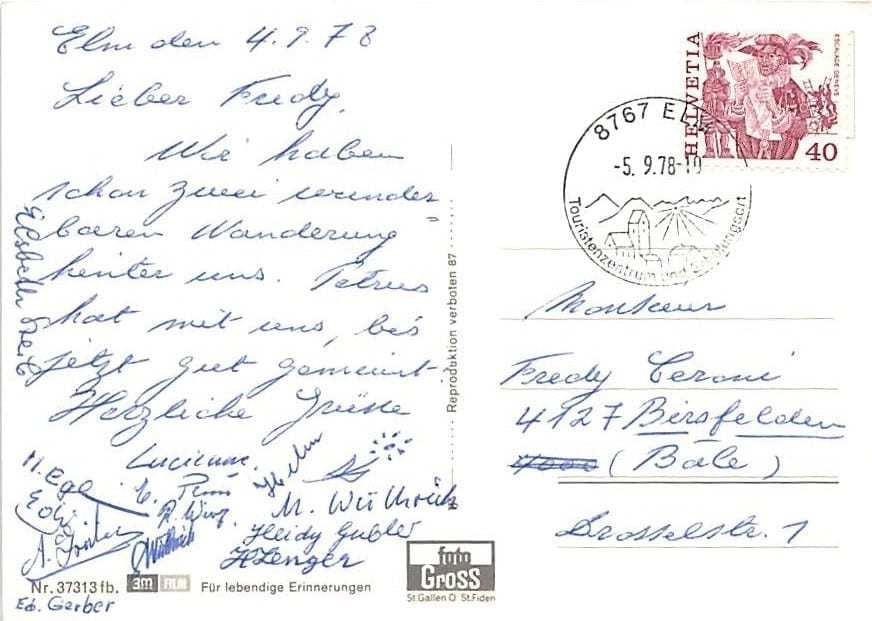 Elm den 4.9.78
Lieber Fredy,
Wir haben
schon zwei wunder=
baren Wanderung
hinter uns. Petrus
hat mit uns, bis
jetzt gut gemeint
Herzliche Grüsse
Lucienne.
M. Wüthrich
Heidy Gubler
H Zenger
Ed. Gerber
Elsbeth
Nr. 37313 fb. 3M FILM Für lebendige Erinnerungen
foto
Gross
St.Gallen O St.Fiden
Reproduktion verboten 87
HELVETIA
ESCALADE GENÈVE
40
8767 ELM
-5. 9.78-10
Touristenzentrum und Erholungsort
Monsieur
Fredy Ceroni
4127 Birsfelden
(Bâle)
Drosselstr. 1